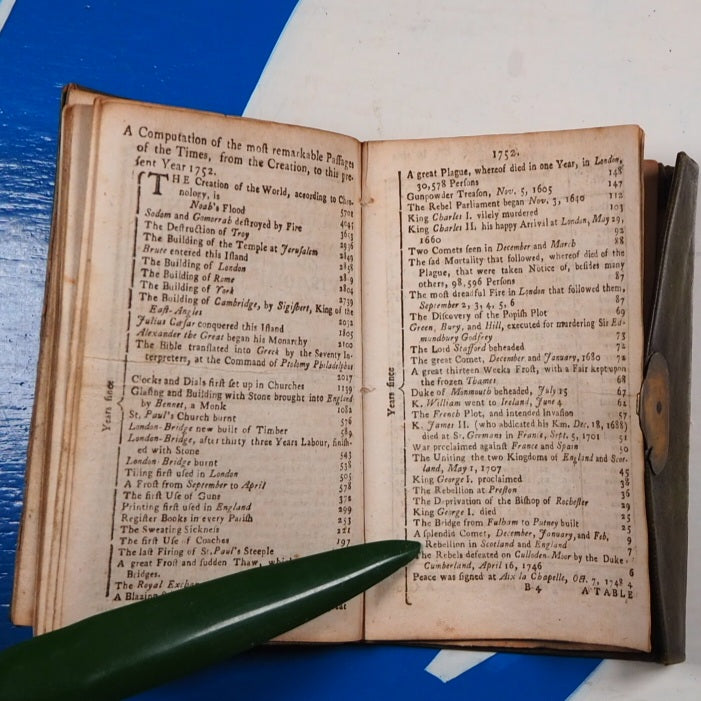 A Computation of the moſt remarkable Paſſages
of the Times, from the Creation, to this pre-
ſent Year 1752.
THE Creation of the World, according to Chro-
nology, is 5701
Noah's Flood 4045
Sodom and Gomorrah deſtroyed by Fire 3643
The Deſtruction of Troy
The Building of the Temple at Jeruſalem
Brute entered this Iſland
The Building of London
The Building of Rome
The Building of York
The Building of Cambridge, by Sigiſbert, King of the
Eaſt-Angles
Julius Cæſar conquered this Iſland
Alexander the Great began his Monarchy
The Bible translated into Greek by the Seventy In-
terpreters, at the Command of Ptolomy Philadelphus
2017
Clocks and Dials firſt ſet up in Churches 1139
Glaſing and Building with Stone brought into England
by Bennet, a Monk 1082
St. Paul's Church burnt 576
London-Bridge new built of Timber 589
London-Bridge, after thirty three Years Labour, finiſh-
ed with Stone 543
London-Bridge burnt 538
Tiling firſt uſed in London 505
A Froſt from September to April 578
The firſt Uſe of Guns 372
Printing firſt uſed in England 299
Regiſter Books in every Pariſh 253
The Sweating Sickneſs
The firſt Uſe of Coaches 197
The laſt Firing of St. Paul's Steeple
A great Froſt and ſudden Thaw, which
Bridges.
The Royal
A Blazing
Years ſince
1752.
A great Plague, whereof died in one Year, in London,
30,578 Perſons 148
Gunpowder Treaſon, Nov. 5, 1605 147
The Rebel Parliament began Nov. 3, 1640 112
King Charles I. vilely murdered 103
King Charles II. his happy Arrival at London, May 29,
1660 92
Two Comets ſeen in December and March 88
The ſad Mortality that followed, whereof died of the
Plague, that were taken Notice of, beſides many
others, 98,596 Perſons 87
The moſt dreadful Fire in London that followed them,
September 2, 3, 4, 5, 6 87
The Diſcovery of the Popiſh Plot 69
Green, Bury, and Hill, executed for murdering Sir Ed-
mundbury Godfrey 73
The Lord Stafford beheaded 72
The great Comet, December and January, 1680 72
A great thirteen Weeks Froſt, with a Fair kept upon
the frozen Thames 68
Duke of Monmouth beheaded, July 15 67
K. William went to Ireland, June 4 62
The French Plot, and intended Invaſion 57
K. James II. (who abdicated his Km. Dec. 18, 1688)
died at St. Germans in France, Sept. 5, 1701 51
War proclaimed againſt France and Spain 50
The Uniting the two Kingdoms of England and Scot-
land, May 1, 1707 45
King George I. proclaimed 38
The Rebellion at Preſton 36
The Deprivation of the Biſhop of Rocheſter 29
King George I. died 25
The Bridge from Fulham to Putney built 25
A ſplendid Comet, December, January, and Feb, 9
Rebellion in Scotland and England 7
The Rebels defeated on Culloden-Moor by the Duke
Cumberland, April 16, 1746 6
Peace was ſigned at Aix la Chapelle, Oct. 7, 1748 4
B 4 A TABLE
Years ſince